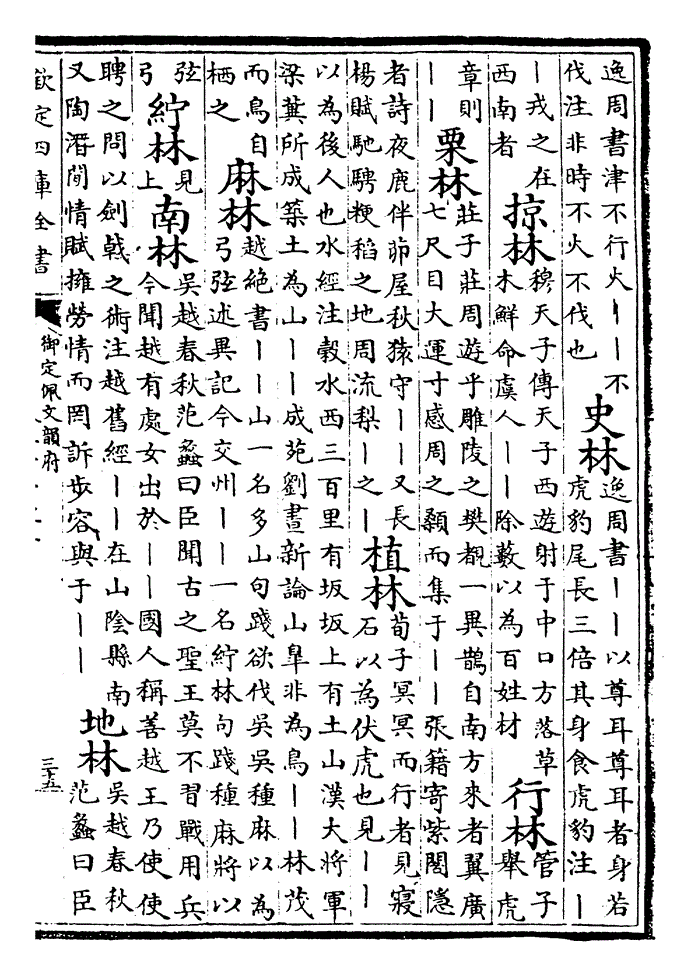 逸周書津不行火——不
伐注非時不火不伐也
史林
逸周書——以尊耳尊耳者身若
虎豹尾長三倍其身食虎豹注—
—戎之在
西南者
掠林
穆天子傳天子西遊射于中口方落草
木鮮命虞人——除藪以為百姓材
行林
管子
舉虎
章則
——
栗林
莊子莊周遊乎雕陵之樊覩一異鵲自南方來者翼廣
七尺目大運寸感周之顙而集于——張籍寄紫閣隱
者詩夜鹿伴茆屋秋猿守——又長
楊賦馳騁粳稻之地周流梨—之—
植林
荀子冥冥而行者見寢
石以為伏虎也見——
以為後人也水經注穀水西三百里有坂坂上有土山漢大將軍
梁冀所成築土為山——成苑劉晝新論山皐非為鳥——林茂
而鳥自
栖之
麻林
越絶書——山一名多山句踐欲伐吳吳種麻以為
弓弦述異記今交州——一名紵林句踐種麻將以
弦
弓
紵林
見
上
南林
吳越春秋范蠡曰臣聞古之聖王莫不習戰用兵
今聞越有處女出於——國人稱善越王乃使使
聘之問以劍戟之術注越舊經——在山陰縣南
又陶潛閒情賦擁勞情而罔訴步容與于——
地林
吳越春秋
范蠡曰臣
欽定四庫全書
御定佩文韻府
三十五